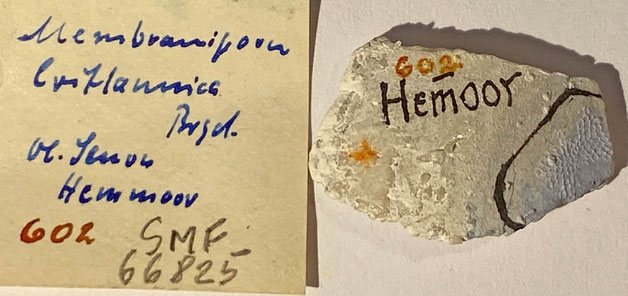 Membranipora
Brittannica
Brgd.
Ob. Senon
Hemmoor
602
SMF
66825
602
Hem̄oor